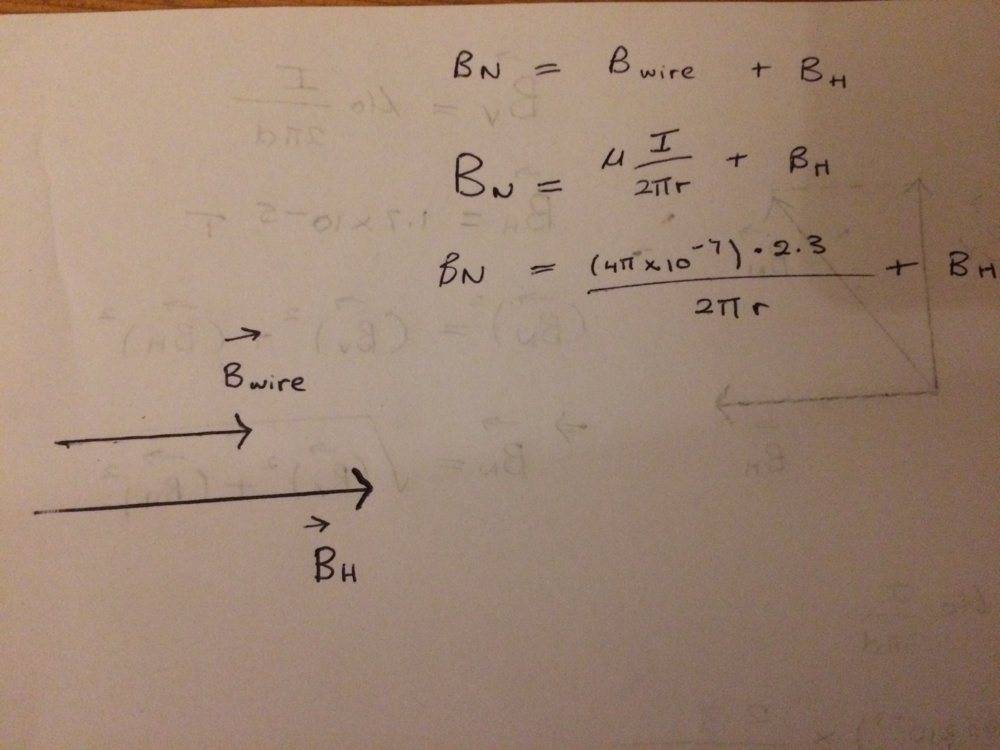 BN = Bwire + BH
BN = μ I/2πr + BH
BN = (4π×10⁻⁷)·2.3/2πr + BH
→Bwire
→BH